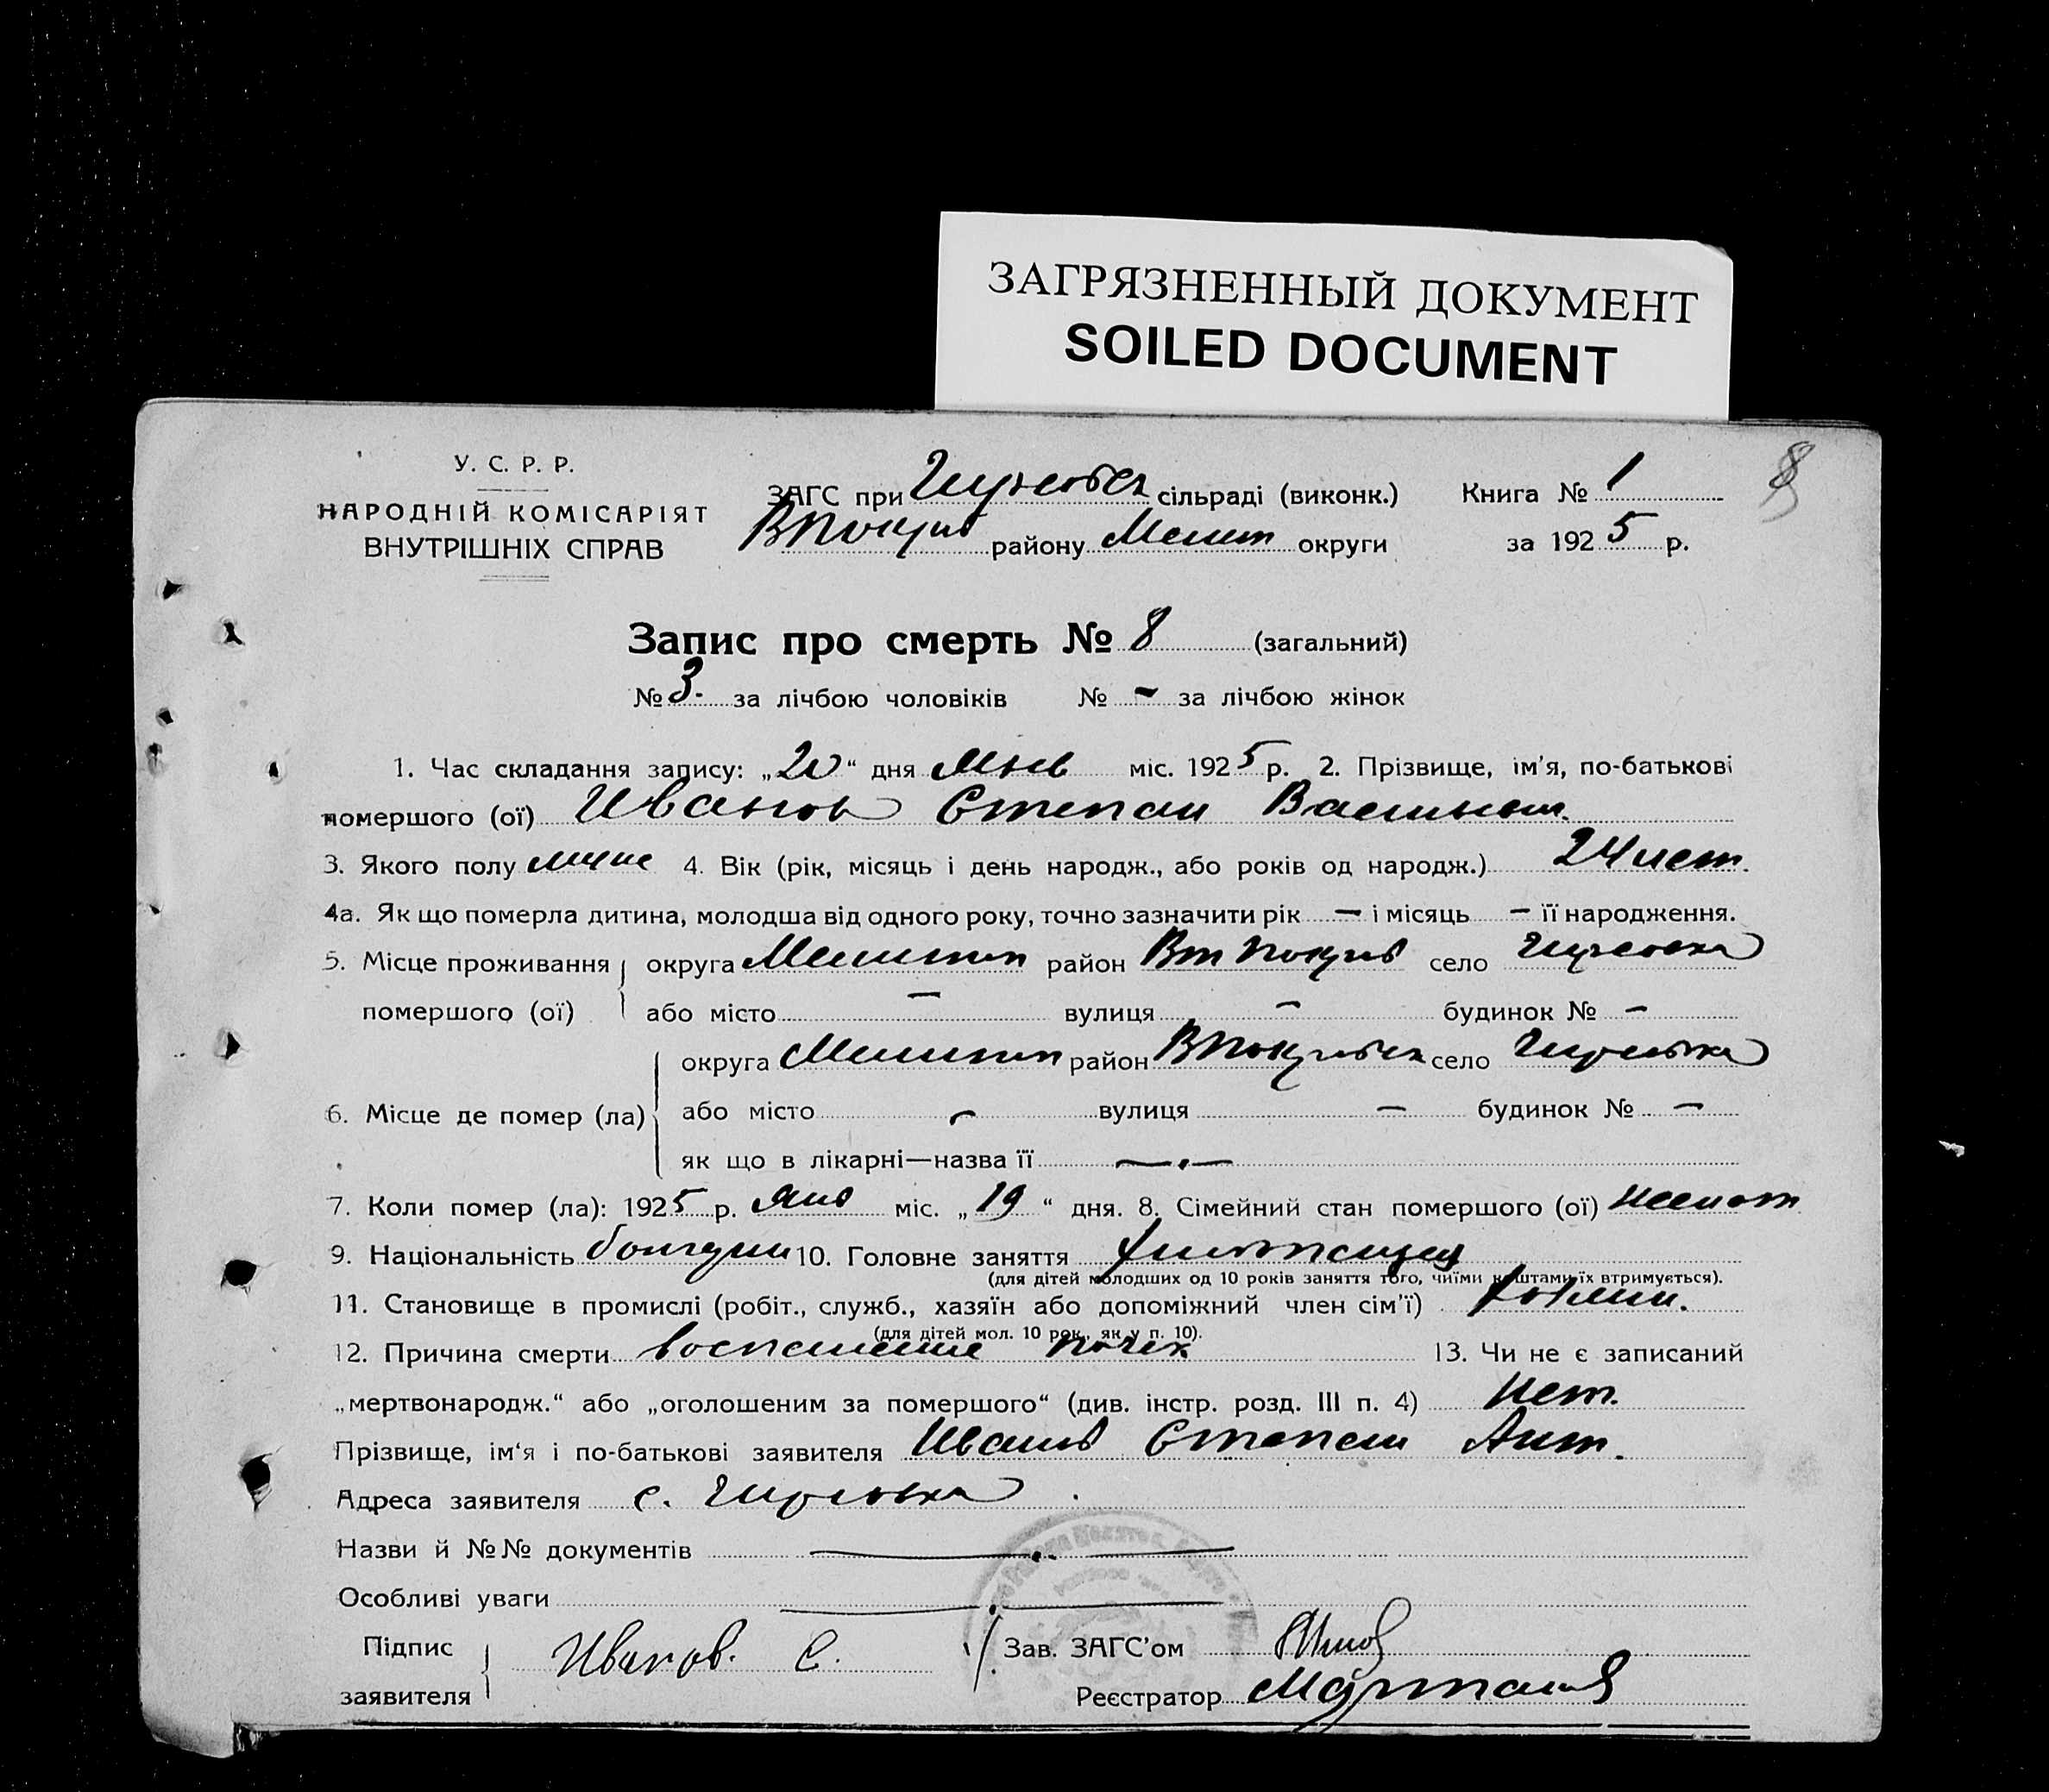 ЗАГРЯЗНЕННЫЙ ДОКУМЕНТ
SOILED DOCUMENT
8
У. С. Р. Р.
НАРОДНІЙ КОМІСАРІЯТ
ВНУТРІШНІХ СПРАВ
ЗАГС при сільраді (виконк.) Книга № 1
району Мелит округи за 1925 р.
Запис про смерть № 8 (загальний)
№ 3. за лічбою чоловіків № - за лічбою жінок
1. Час складання запису: „20“ дня Янв міс. 1925 р. 2. Прізвище, ім'я, по-батькові
помершого (ої) Иванов Степан Васильев.
3. Якого полу 4. Вік (рік, місяць і день народж., або років од народж.) 24 лет.
4а. Як що померла дитина, молодша від одного року, точно зазначити рік — і місяць — її народження.
5. Місце проживання округа район село
помершого (ої) або місто — вулиця — будинок № —
округа район село
6. Місце де помер (ла) або місто — вулиця — будинок № —
як що в лікарні—назва її —.—
7. Коли помер (ла): 1925 р. Янв міс. „19“ дня. 8. Сімейний стан помершого (ої)
9. Національність болгарин 10. Головне заняття
(для дітей молодших од 10 років заняття того, чиїми коштами їх втримується).
11. Становище в промислі (робіт., служб., хазяїн або допоміжний член сім'ї)
(для дітей мол. 10 рок., як у п. 10).
12. Причина смерти воспаление почек 13. Чи не є записаний
„мертвонародж.“ або „оголошеним за помершого“ (див. інстр. розд. III п. 4) Нет.
Прізвище, ім'я і по-батькові заявителя Иванов Степан Ант.
Адреса заявителя с.
Назви й №№ документів —.—
Особливі уваги —.—
Підпис Иванов. С. Зав. ЗАГС'ом
заявителя Реєстратор